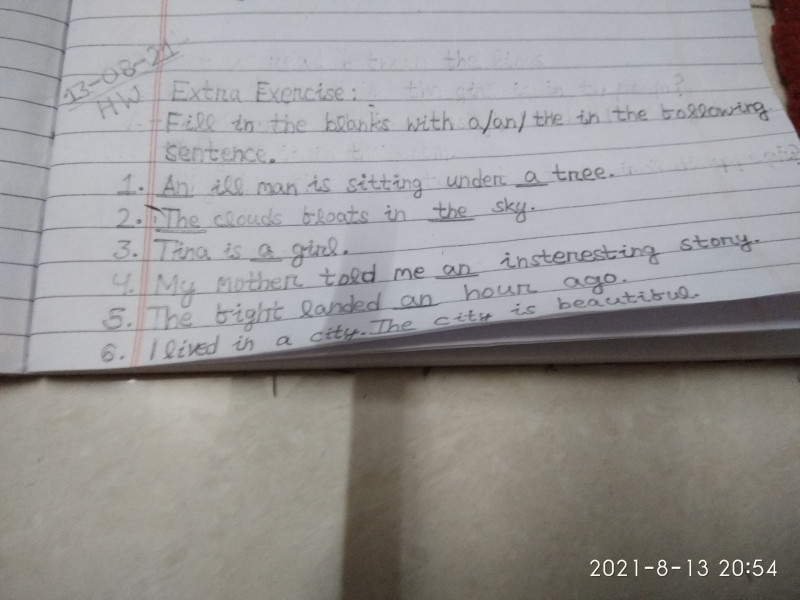 13-08-21
HW
Extra Exercise:
Fill in the blanks with a/an/the in the following
sentence.
1. An ill man is sitting under a tree.
2. The clouds floats in the sky.
3. Tina is a girl.
4. My mother told me an insteresting story.
5. The fight landed an hour ago.
6. I lived in a city. The city is beautiful.
2021-8-13 20:54